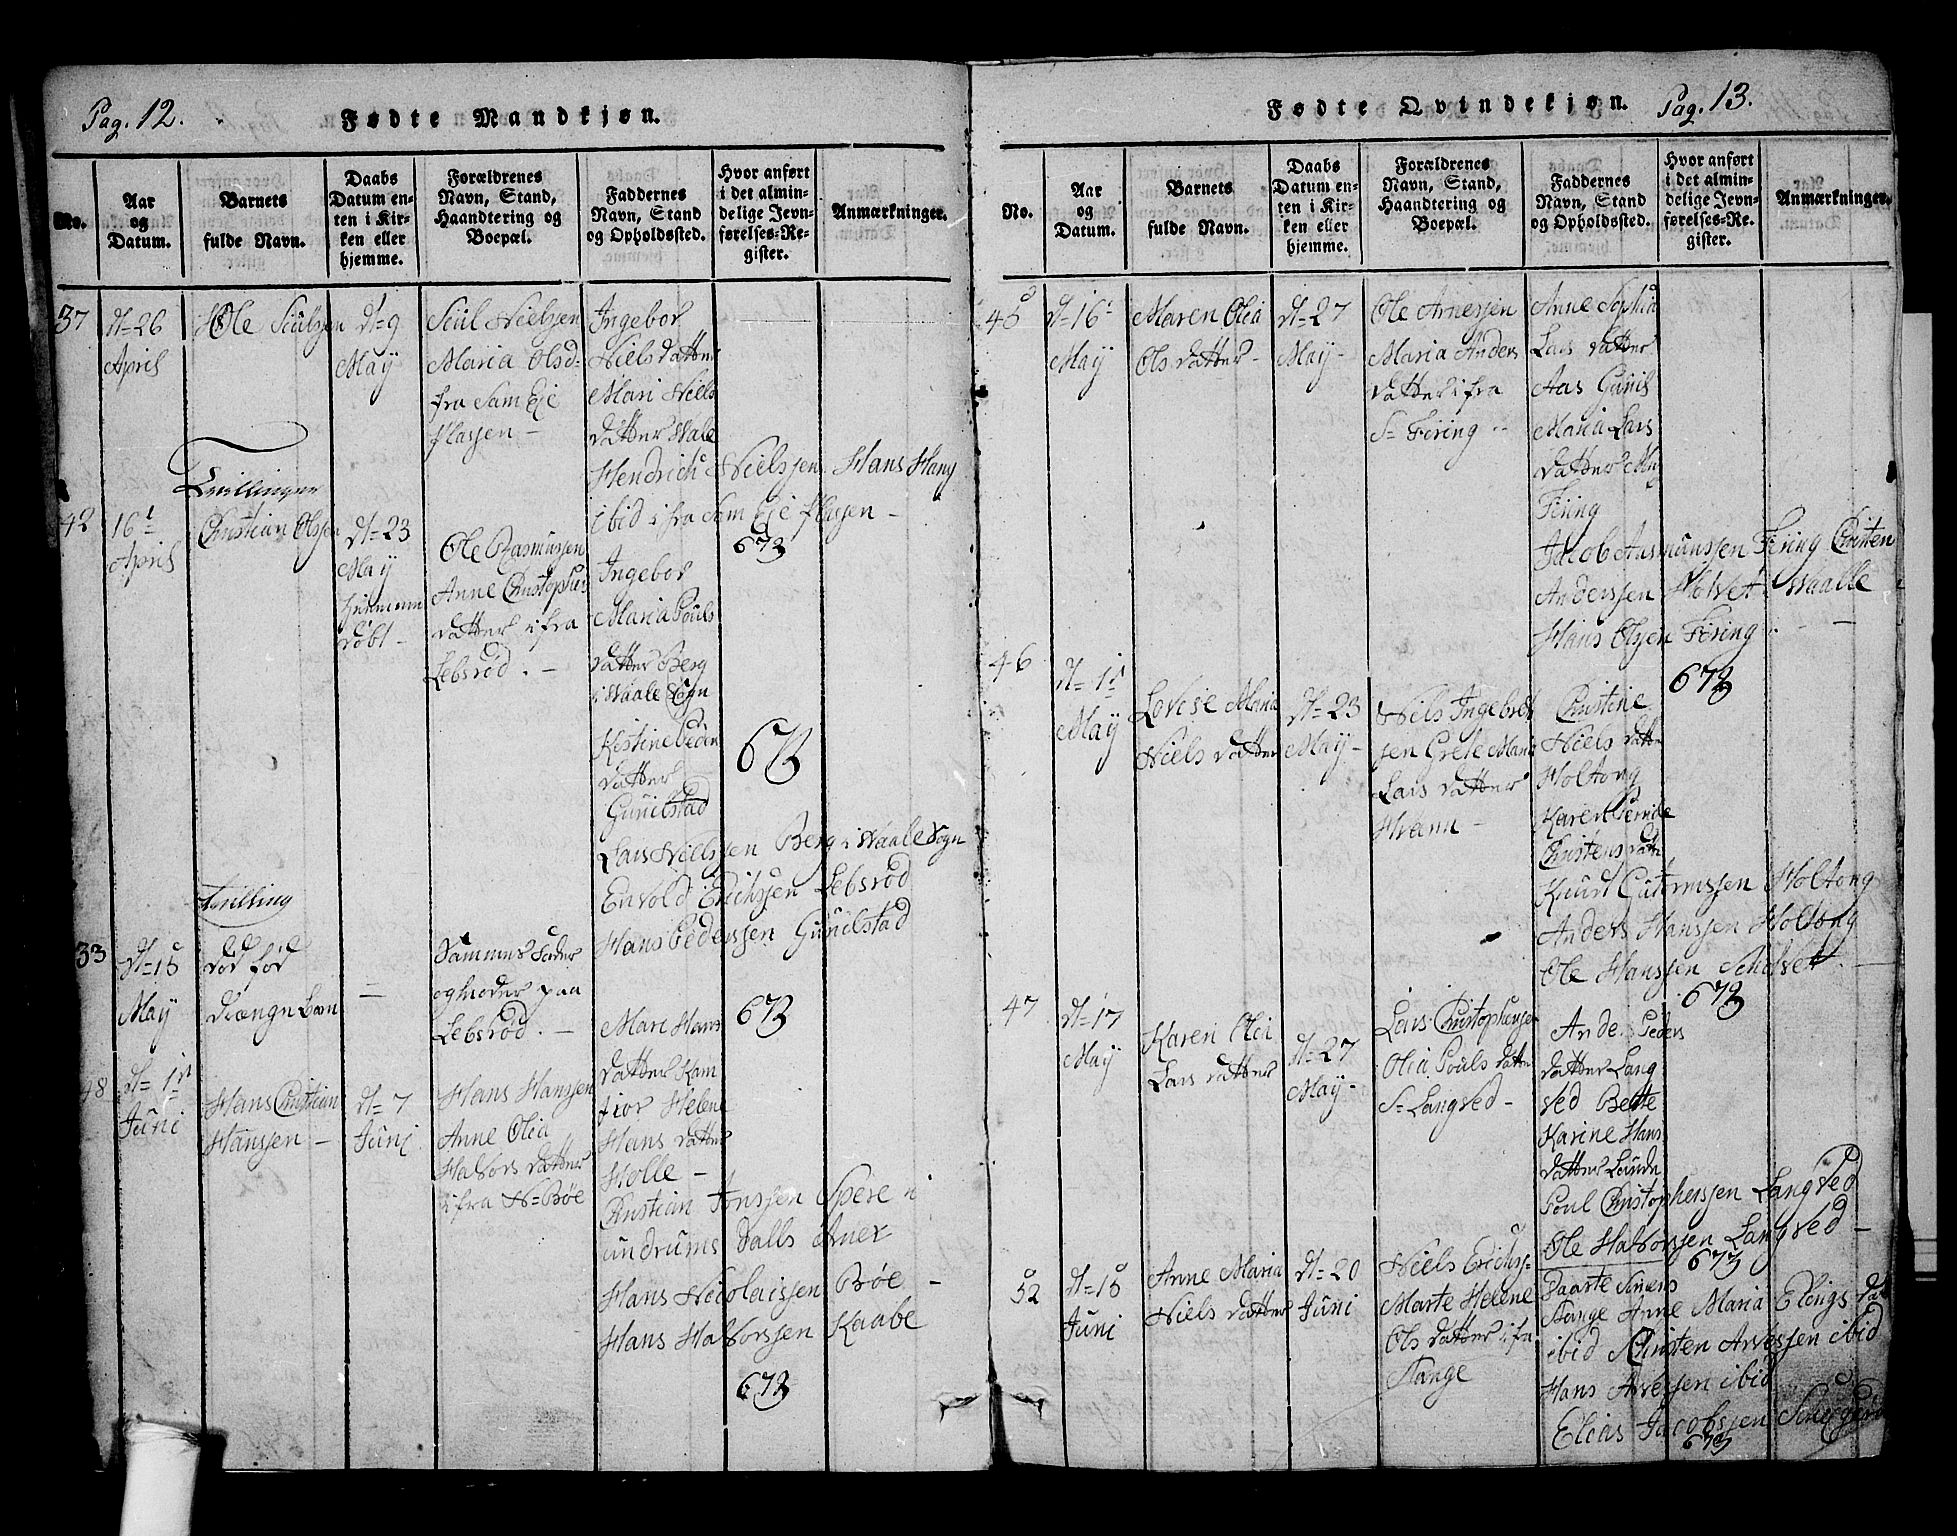 Pag. 12.
Fødte Mandkjøn.
No.
Aar
og
Datum.
Barnets
fulde Navn.
Daabs
Datum en-
ten i Kir-
ken eller
hjemme.
Forældrenes
Navn, Stand,
Haandtering og
Boepæl.
Faddernes
Navn, Stand
og Opholdssted.
Hvor anført
i det almin-
delige Jevn-
førelses-Re-
gister.
Anmærkninger.
37
d= 26
April
Ole
d= 9
May
Nielsen
Maria Olsd=
fra Sem Eje
Plassen —
Ingebor
Niels datter
Mari Niels
datter Wale
Hendrich Nielssen Hans Hans
ibid ifra Sem Eje Plassen —
673
Tvillinger
42
16
April
Christian Olssen
d= 23
May
hiemme
døbt —
Ole Rasmussen
Anne Christophers
datter ifra
Lebsrød. —
Ingebor
Maria Pouls
datter Berg
i Waale Sogn
Kistine Peder
datter
Gunilstad
Lars Nielssen Berg i Waale Sogn
Envold Erichssen Lebsrød
Hans Pederssen Gunilstad
673
Tvilling
33
d= 15
May
død fød
drænge Barn
=
Sammes Fader
og moder paa
Lebsrød. —
673
48
d= 1
Juni
Hans Christian
Hanssen —
d= 7
Juni
Hans Hanssen
Anne Olia
Halvors datter
ifra N= Bøe
Mari Hans
datter Kam
fior Helene
Hans datter
Holle —
Christian Jonssen
Hans Nicolaissen Bøe —
Hans Halvorssen Kaabe
673
Fødte Qvindekjøn.
Pag. 13.
No.
Aar
og
Datum.
Barnets
fulde Navn.
Daabs
Datum en-
ten i Kir-
ken eller
hjemme.
Forældrenes
Navn, Stand,
Haandtering og
Boepæl.
Faddernes
Navn, Stand
og Opholdssted.
Hvor anført
i det almin-
delige Jevn-
førelses-Re-
gister.
Anmærkninger.
45
d= 16
May
Maren Olia
Ols datter —
d= 27
May —
Ole Arnessen
Maria Anders
datter ifra
S= Firing
Anne Sophia
Lars datter
Aas
Maria Lars
datter
Firing
Jacob Firing Christen
Anderssen Holvet Waalle
Hans Olssen Firing
673
46
d= 1
May
Lovise Maria
Niels datter
d= 23
May —
Niels Ingebret
sen Grete Maria
Lars datter
Hvam —
Christine
Niels datter
Holtong
Karen
Christens datter
Knud Holtong
Anders Hanssen Holtong
Ole Hanssen Solvet —
673
47
d= 17
May
Karen Olia
Lars datter
d= 27
May —
Lars Christopherssen
Olia Pouls datter
S= Langved —
Ande Peders
datter Lang
ved Berte
Karine Hans
datter Lunde
Poul Christopherssen Langved
Ole Halvorssen Langved —
673
52
d= 15
Juni
Anne Maria
Niels datter
d= 20
Juni
Niels Erichss=
Marte Helene
Ols datter ifra
Stange
Stange Anne Maria Elings dat
ibid Christen Arvessen ibid
Hans Arvessen ibid
Elias Jacobssen
673